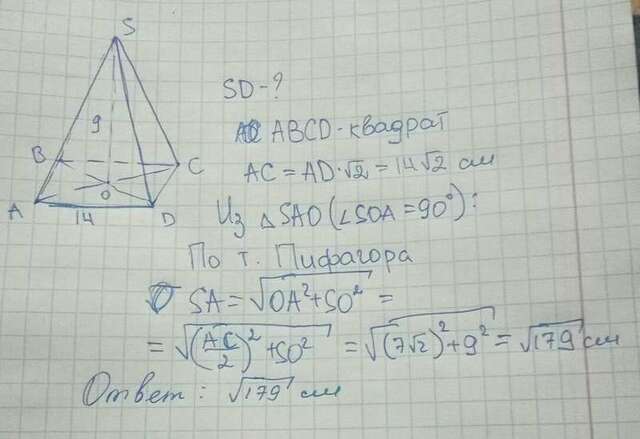 S
9
B
C
O
A
D
14
SD-?
ABCD-квадрат
AC = AD·√2 = 14√2 см
Из △SAO (∠SOA = 90°):
По т. Пифагора
SA = √(OA² + SO²) =
= √((AC/2)² + SO²) = √((7√2)² + 9²) = √179 см
Ответ: √179 см